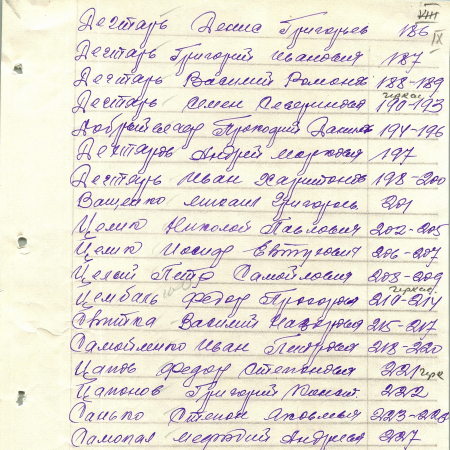 VIII
Дегтарь Денис Григорьев 186
IX
Дегтарь Григорий Иванович 187
Дегтарь Василий Романов 188-189
Дегтарь Семен Северинович 190-193
Добрый Прокофий Данил 194-196
Дегтарев Андрей Маркович 197
Дегтарь Иван Харитонов 198-200
Ващенко Михаил Григорьев 201
Целик Николай Павлович 202-205
Целик Иосиф Евтухович 206-207
Целой Петр Самойлович 208-209
Цембаль Федор Прохоров 210-214
Свитка Василий Назарович 215-217
Самойленко Иван Петрович 218-220
Цапов Федор Степанович 221
Цапонов Григорий 222
Санько Степан Яковлевич 223-226
Самопал Мефодий Андреев 227